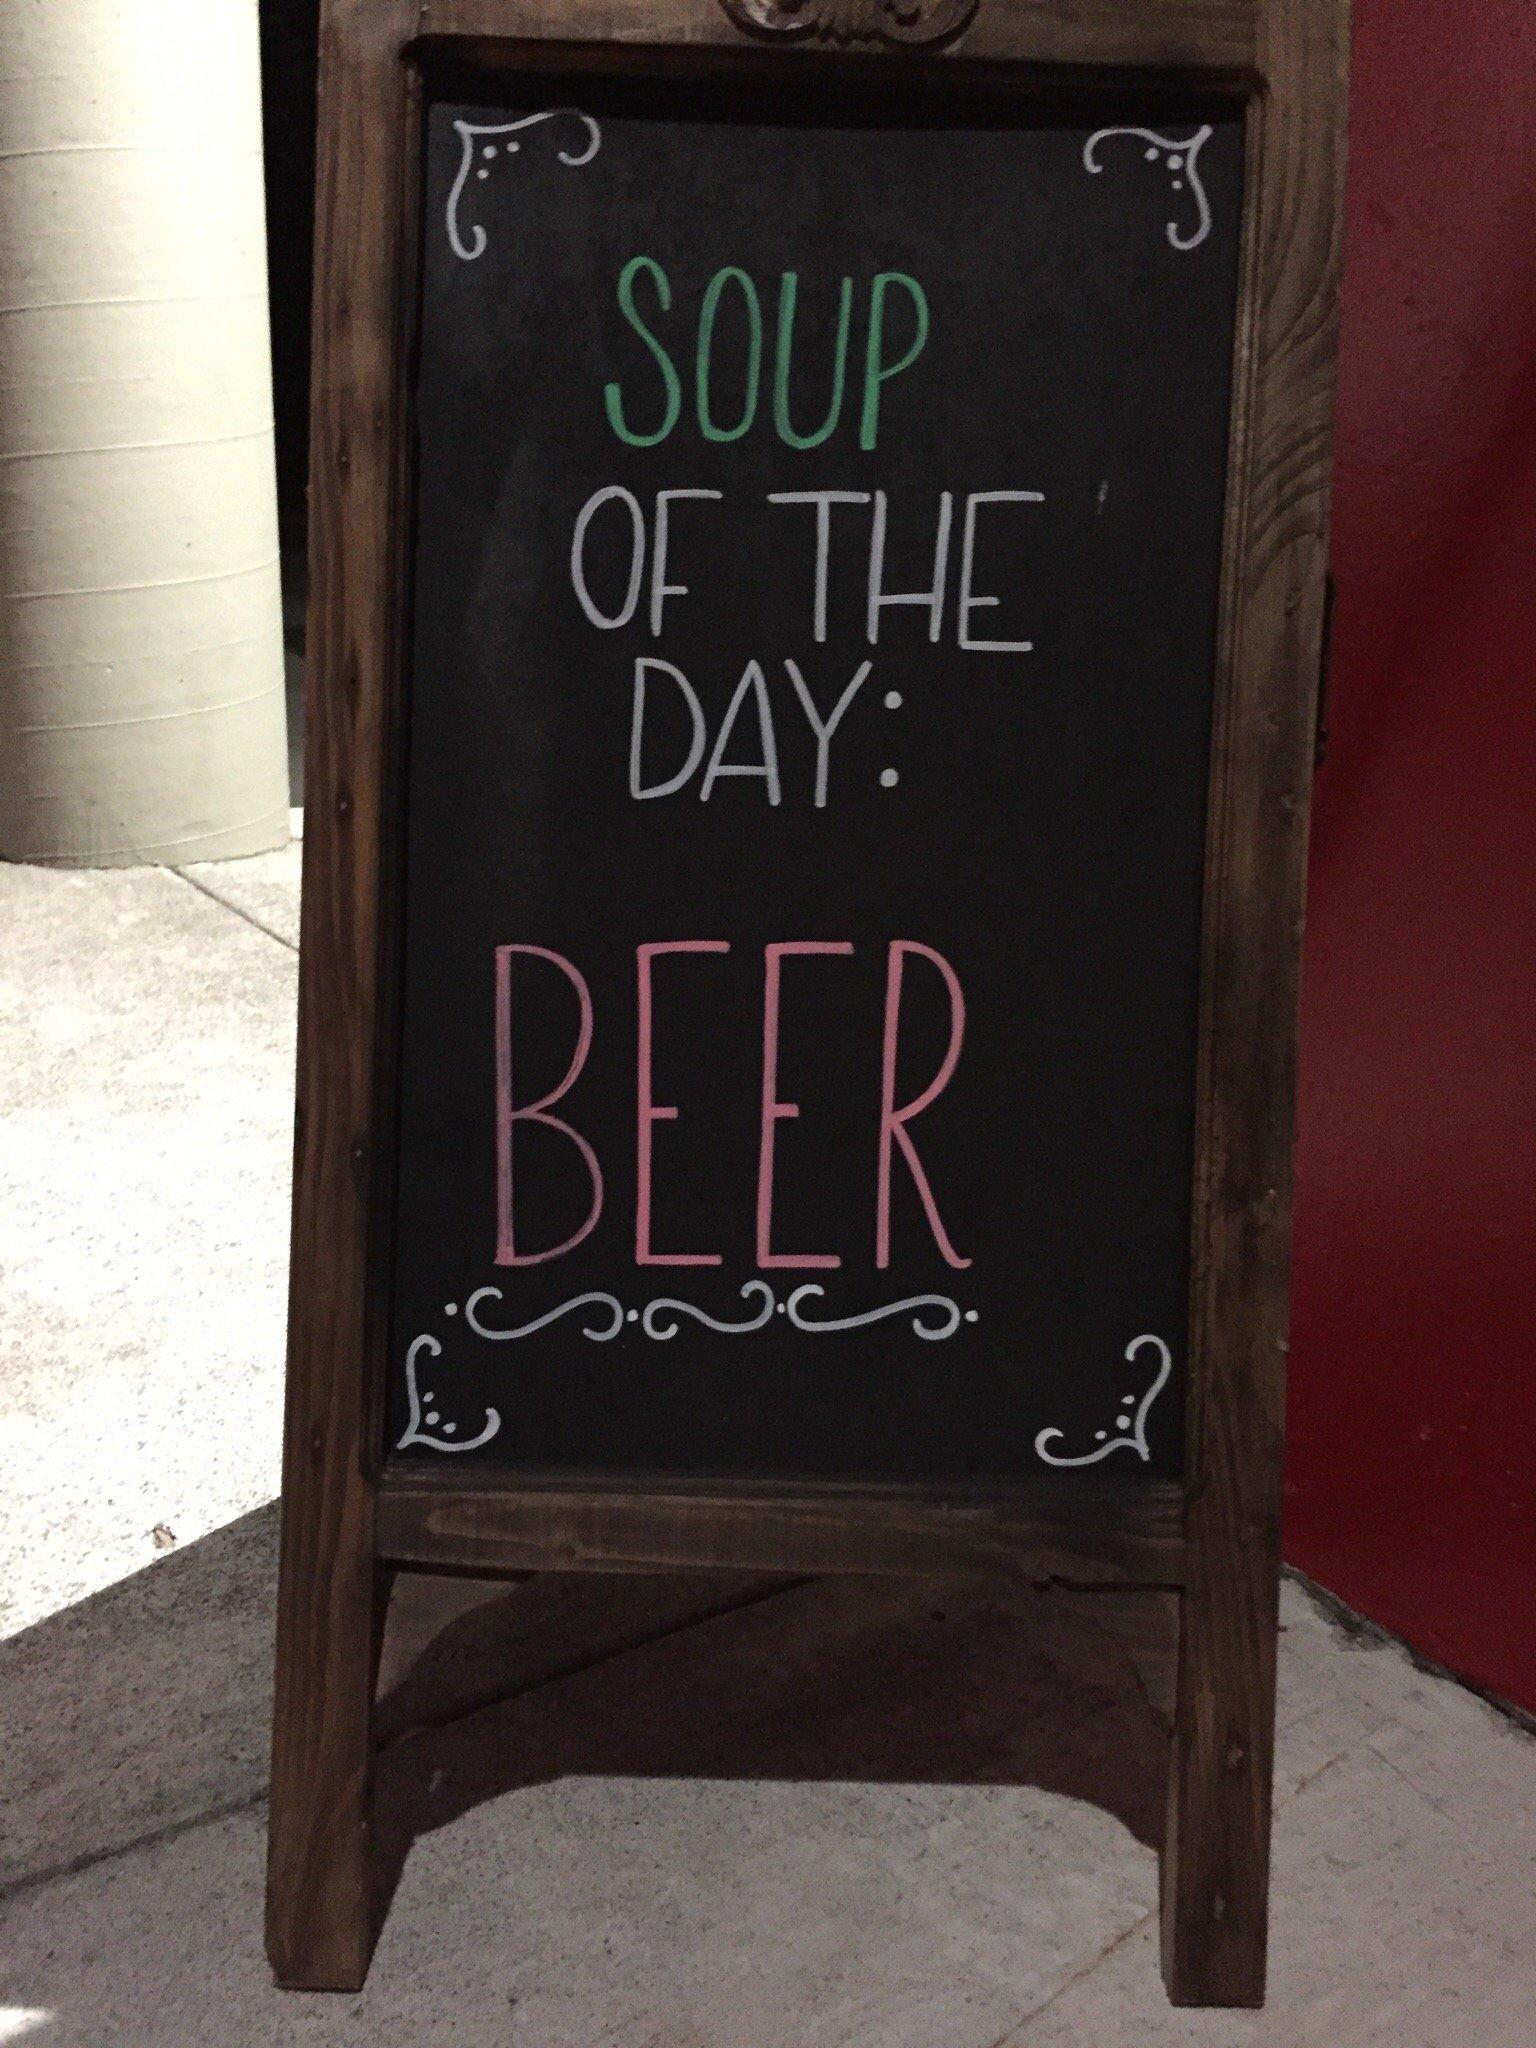 SOUP
OF THE
DAY:
BEER